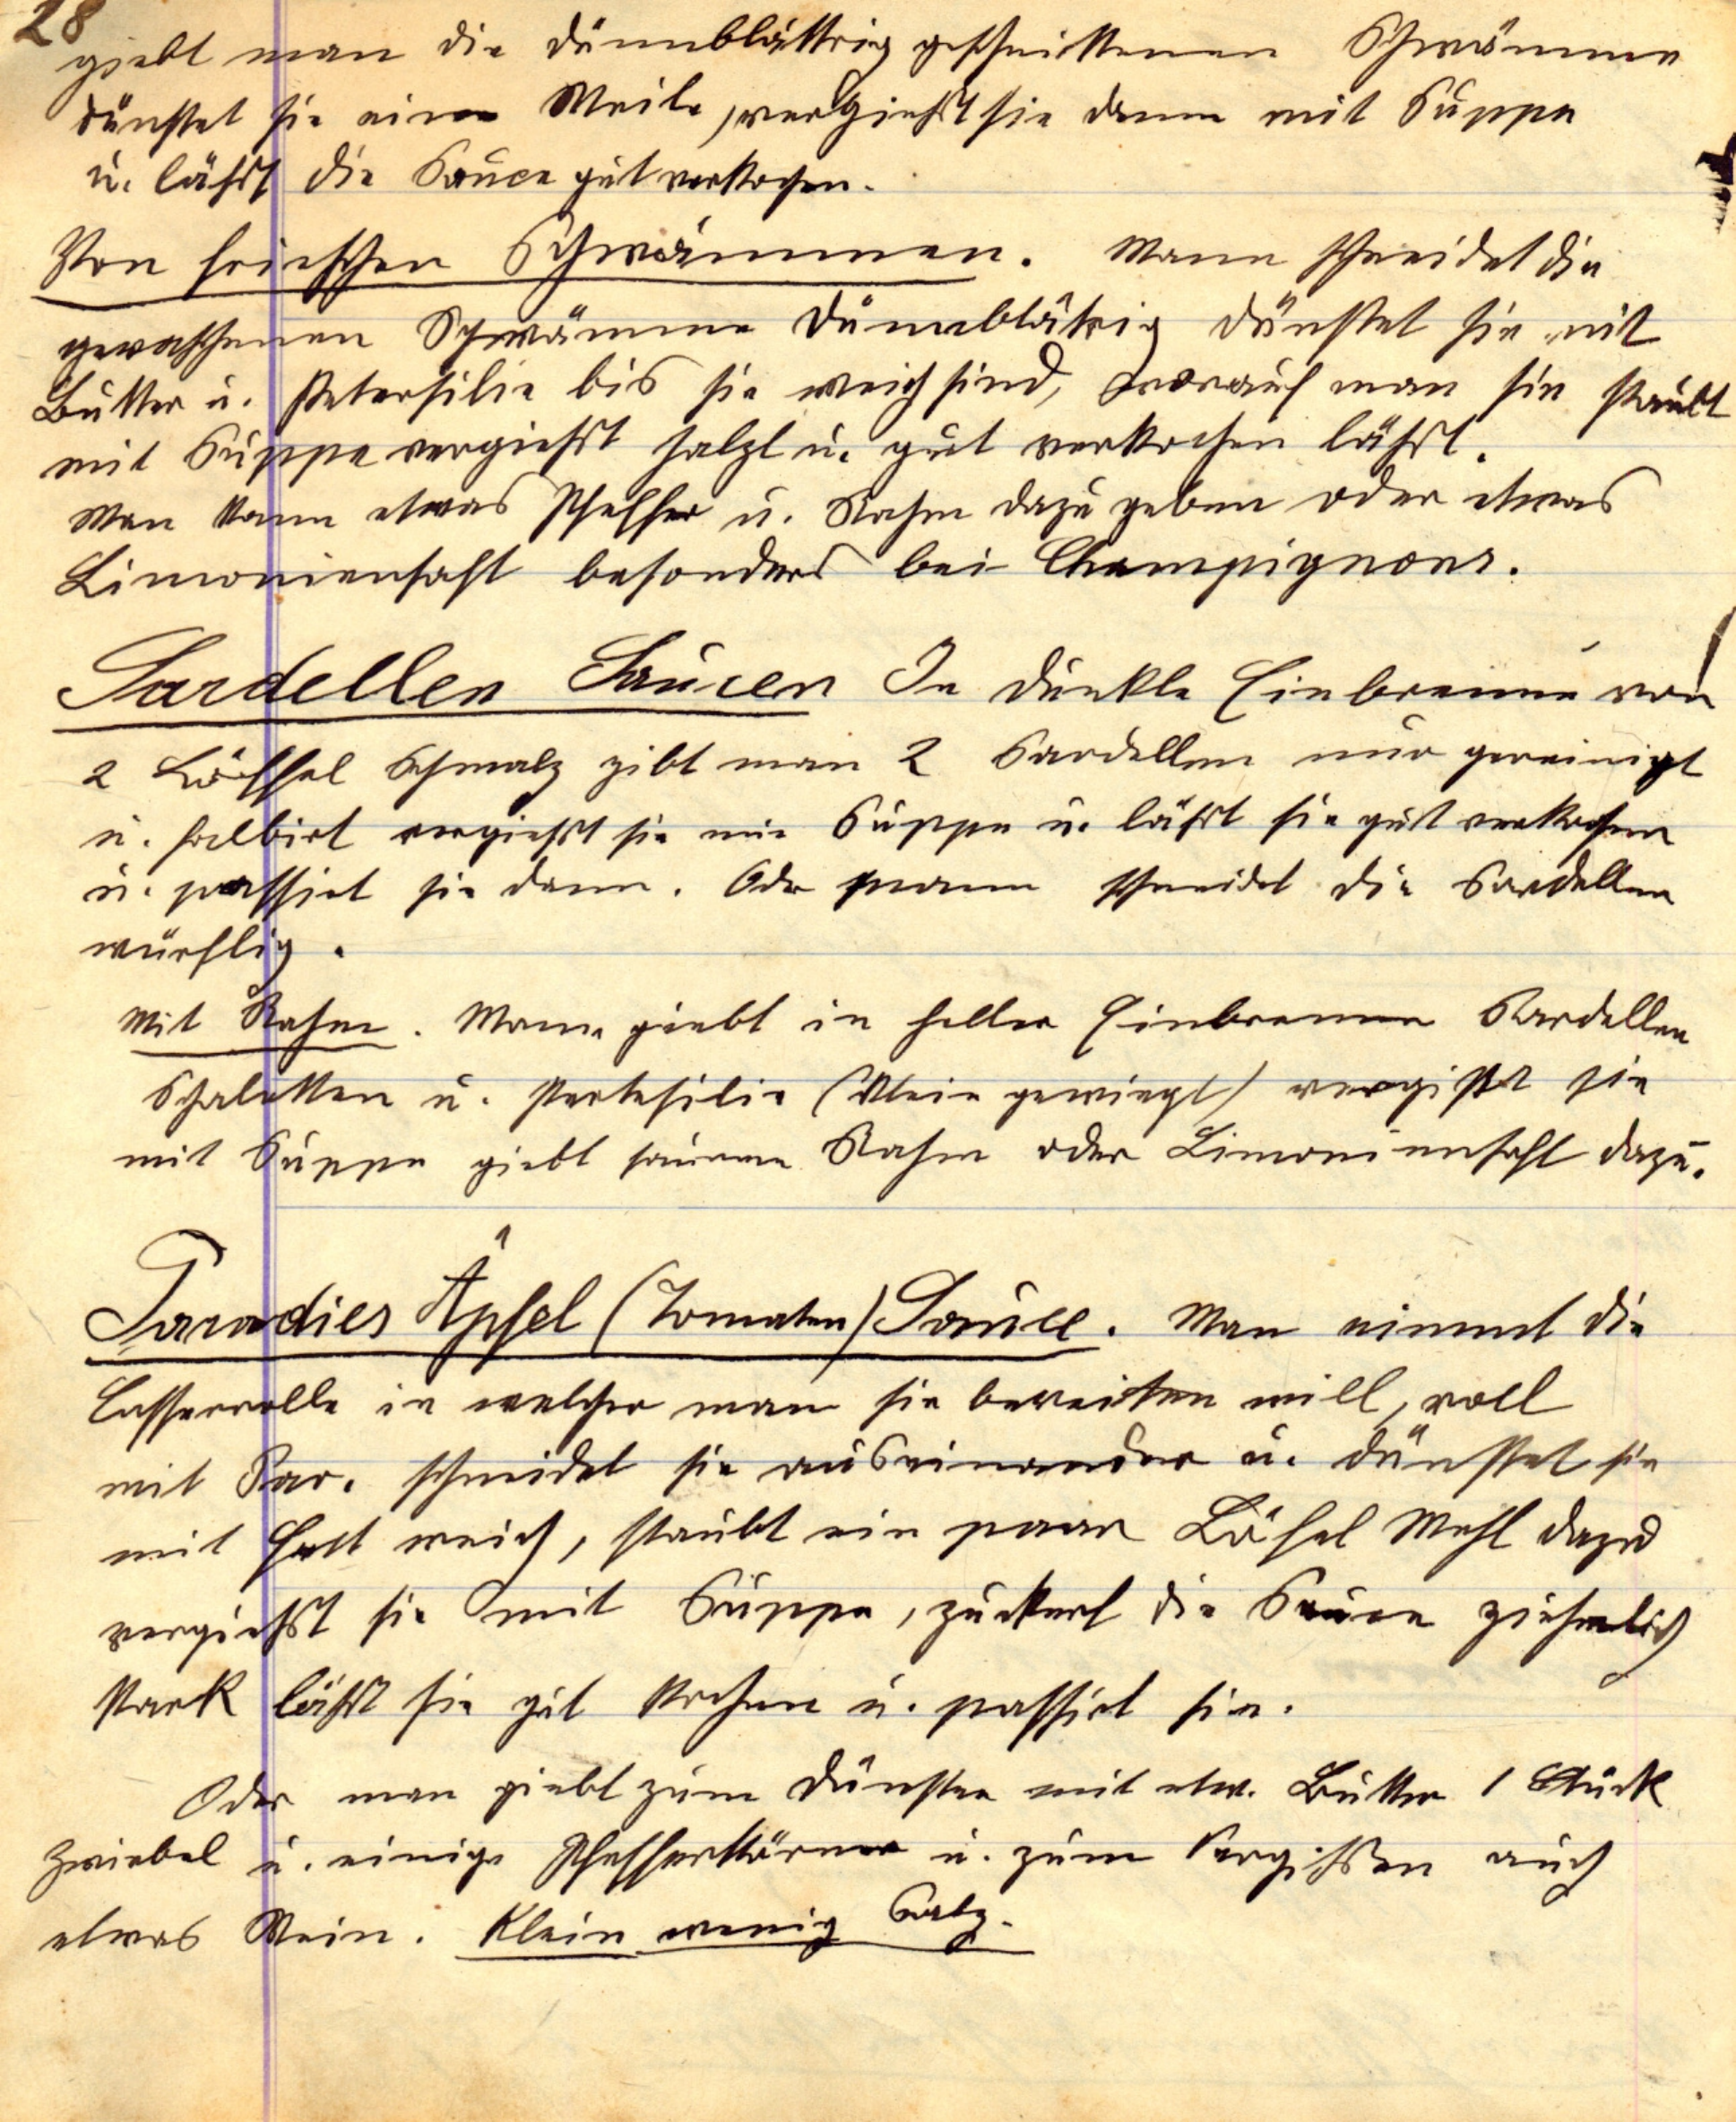 28
giebt man die dünnblättrig geschnittenen Schwämme
dünstet sie eine Weile, vergießt sie dann mit Suppe
u. läßst die Sauce gut verkochen.
Von frischen Schwämmen. Mann schneidet die
gewaschenen Schwämme dünnblätrig dünstet sie mit
Butter u. Petersilie bis sie weich sind, worauf man sie staubt
mit Suppe vergießst salzt u. gut verkochen läßst.
Man kann etwas Pfeffer u. Rahm dazu geben oder etwas
Limoniensaft besonders bei Champignons.
Sardellen Saucen In dunkle Einbrenne von
2 Löffel Schmalz gibt man 2 Sardellen nur gereinigt
u. halbirt vergießst sie mit Suppe u. läßst sie gut verkochen
u. passirt sie dann. Oder mann schneidet die Sardellen
würflig.
Mit Rahm. Mann giebt in heller Einbrenne Sardellen
Schaletten u. Pertesilie (klein gewiegt) vergißt sie
mit Suppe giebt sauren Rahm oder Limoniensaft dazu.
Paradies Äpfel (Tomaten) Sauce. Man nimmt die
Casserrolle in welcher man sie bereiten will, voll
mit Par. schneidet sie auseinander u. dünstet sie
mit Fett weich, staubt ein paar Löfel Mehl dazu
vergießst sie mit Suppe, zuckert die Sauce ziehmlich
stark läßst sie gut kochen u. passirt sie.
Oder man giebt zum Dünsten mit etw. Butter 1 Stück
Zwiebel u. einige Pfefferkörner u. zum Vergißen auch
etwas Wein. Klein wenig Salz.